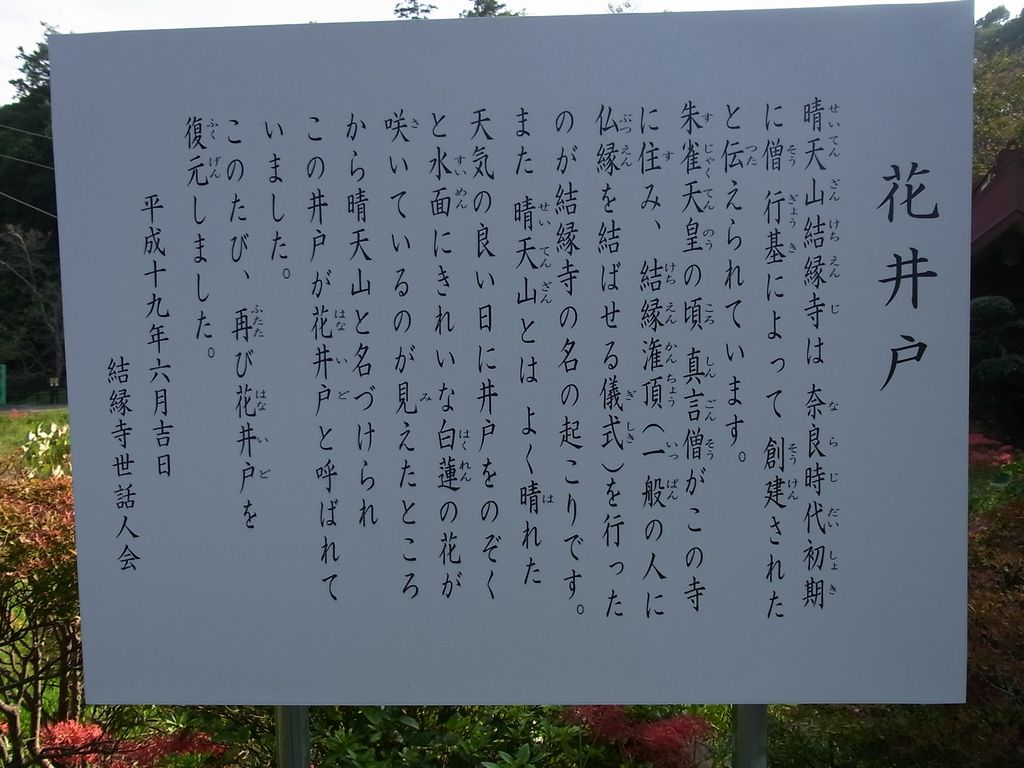 花井戸
晴天山結縁寺は 奈良時代初期
に僧 行基によって 創建された
と伝えられています。
朱雀天皇の頃 真言僧がこの寺
に住み、結縁潅頂(一般の人に
仏縁を結ばせる儀式)を行った
のが結縁寺の名の起こりです。
また 晴天山とは よく晴れた
天気の良い日に井戸をのぞく
と水面にきれいな白蓮の花が
咲いているのが見えたところ
から晴天山と名づけられ
この井戸が花井戸と呼ばれて
いました。
このたび、再び花井戸を
復元しました。
平成十九年六月吉日
結縁寺世話人会